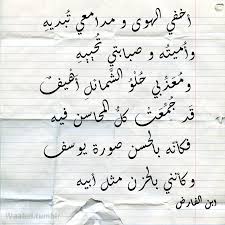 أخفي الهوى و مدامعي تبديه
وأميته و صبابتي تحييه
ومعذبي حلو الشمائل أهيف
قد جمعت كل المحاسن فيه
فكأنه بالحسن صورة يوسف
وكأنني بالحزن مثل أبيه
ابن الفارض